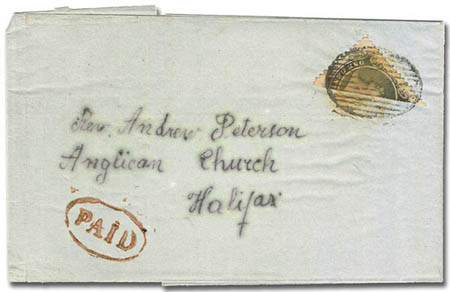 Rev. Andrew Peterson
Anglican Church
Halifax
PAID